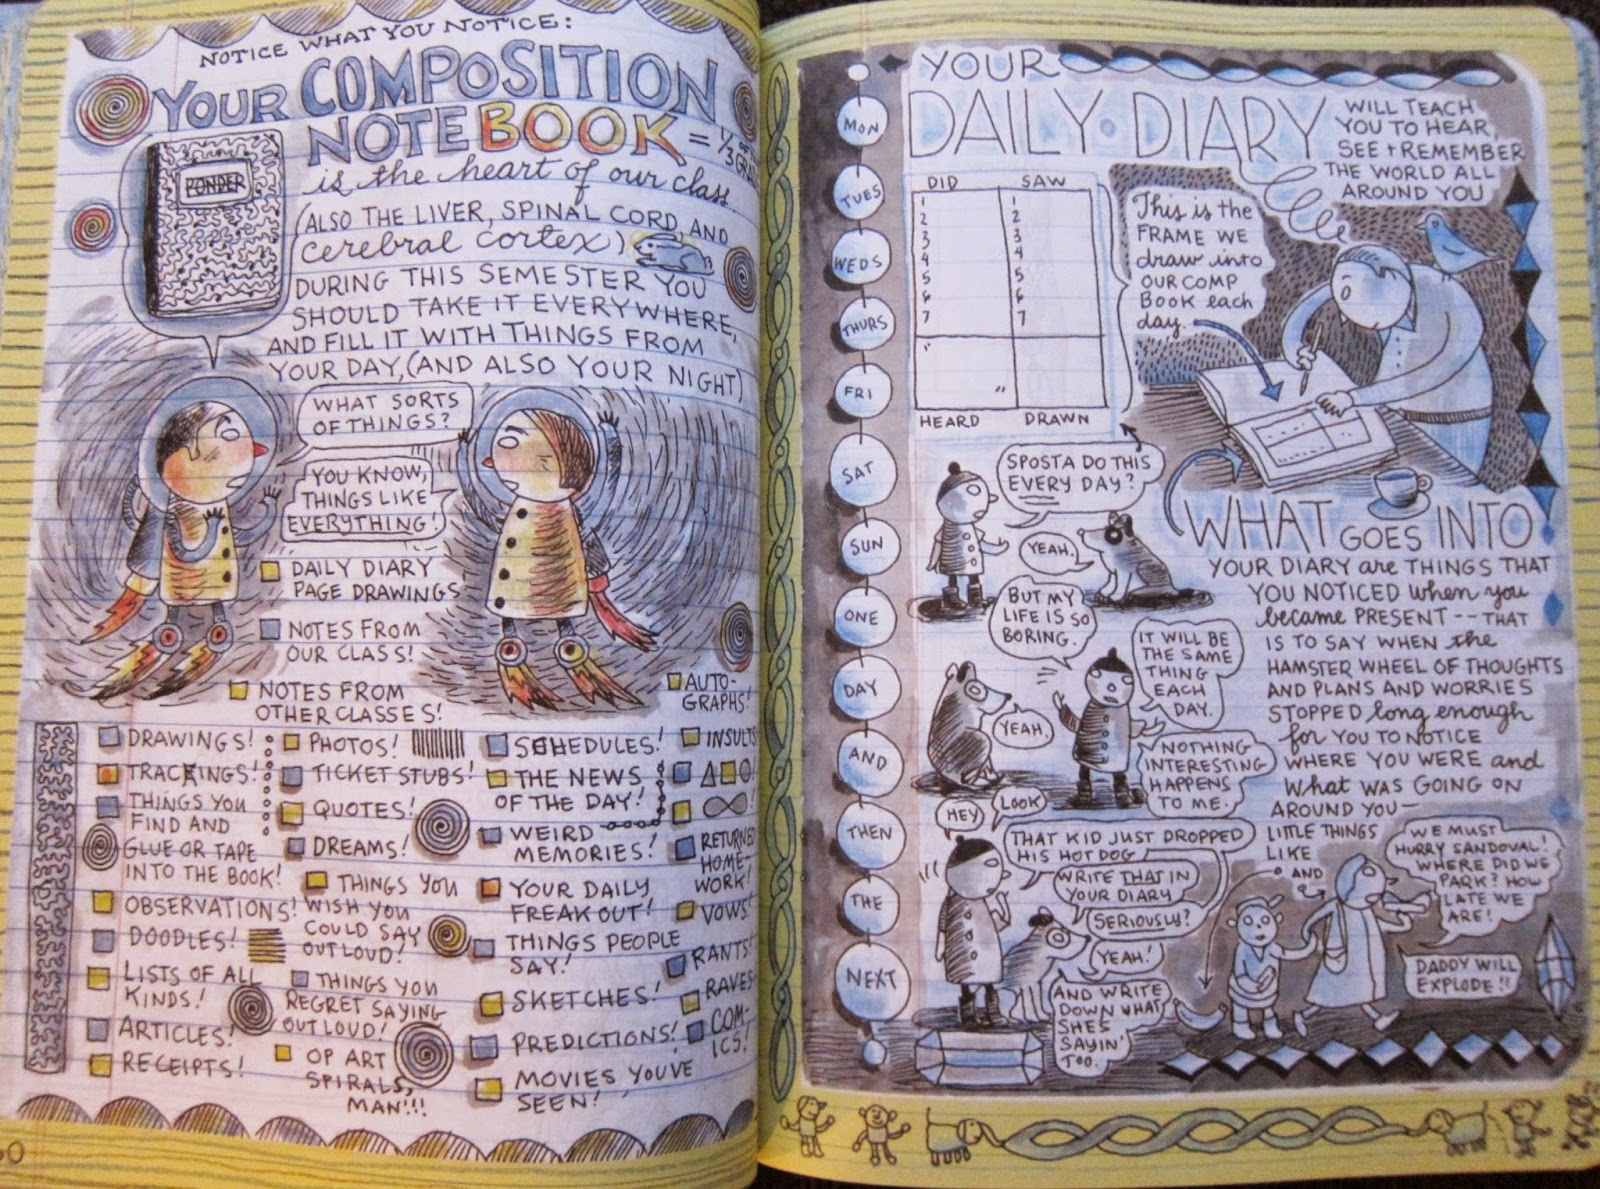 NOTICE WHAT YOU NOTICE:
YOUR COMPOSITION
NOTEBOOK = 1/3 OF YOUR
GRADE
PONDER
is the heart of our class
(ALSO THE LIVER, SPINAL CORD, AND
cerebral cortex)
DURING THIS SEMESTER YOU
SHOULD TAKE IT EVERYWHERE,
AND FILL IT WITH THINGS FROM
YOUR DAY, (AND ALSO YOUR NIGHT)
WHAT SORTS
OF THINGS?
YOU KNOW,
THINGS LIKE
EVERYTHING!
DAILY DIARY
PAGE DRAWINGS
NOTES FROM
OUR CLASS!
NOTES FROM
OTHER CLASSES!
DRAWINGS!
TRACKINGS!
THINGS YOU
FIND AND
GLUE OR TAPE
INTO THE BOOK!
OBSERVATIONS!
DOODLES!
LISTS OF ALL
KINDS!
ARTICLES!
RECEIPTS!
PHOTOS!
TICKET STUBS!
QUOTES!
DREAMS!
THINGS YOU
WISH YOU
COULD SAY
OUT LOUD!
THINGS YOU
REGRET SAYING
OUT LOUD!
OP ART
SPIRALS,
MAN!!!
SCHEDULES!
THE NEWS
OF THE DAY!
WEIRD
MEMORIES!
YOUR DAILY
FREAK OUT!
THINGS PEOPLE
SAY!
SKETCHES!
PREDICTIONS!
MOVIES YOU'VE
SEEN!
AUTO-
GRAPHS!
INSULTS
RETURNED
HOME-
WORK!
VOWS!
RANTS!
RAVES-
COM-
ICS!
YOUR
DAILY DIARY
WILL TEACH
YOU TO HEAR,
SEE + REMEMBER
THE WORLD ALL
AROUND YOU
MON
TUES
WEDS
THURS
FRI
SAT
SUN
ONE
DAY
AND
THEN
THE
NEXT
DID SAW
1 1
2 2
3 3
4 4
5 5
6 6
7 7
" "
HEARD DRAWN
This is the
FRAME WE
draw into
OUR COMP
BOOK each
day.
SPOSTA DO THIS
EVERY DAY?
YEAH.
BUT MY
LIFE IS SO
BORING.
YEAH.
IT WILL BE
THE SAME
THING
EACH
DAY.
NOTHING
INTERESTING
HAPPENS
TO ME.
HEY
LOOK
THAT KID JUST DROPPED
HIS HOT DOG
WRITE THAT IN
YOUR DIARY
SERIOUSLY?
YEAH!
AND WRITE
DOWN WHAT
SHES
SAYIN'
TOO.
WHAT GOES INTO
YOUR DIARY are THINGS THAT
YOU NOTICED when you
became PRESENT -- THAT
IS TO SAY WHEN the
HAMSTER WHEEL OF THOUGHTS
AND PLANS AND WORRIES
STOPPED long enough
for YOU TO NOTICE
WHERE YOU WERE and
What WAS GOING ON
AROUND YOU—
LITTLE THINGS
LIKE
AND
WE MUST
HURRY SANDOVAL!
WHERE DID WE
PARK? HOW
LATE WE
ARE!
DADDY WILL
EXPLODE!!